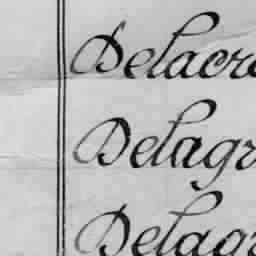 Delacre
Delagr
Delagr